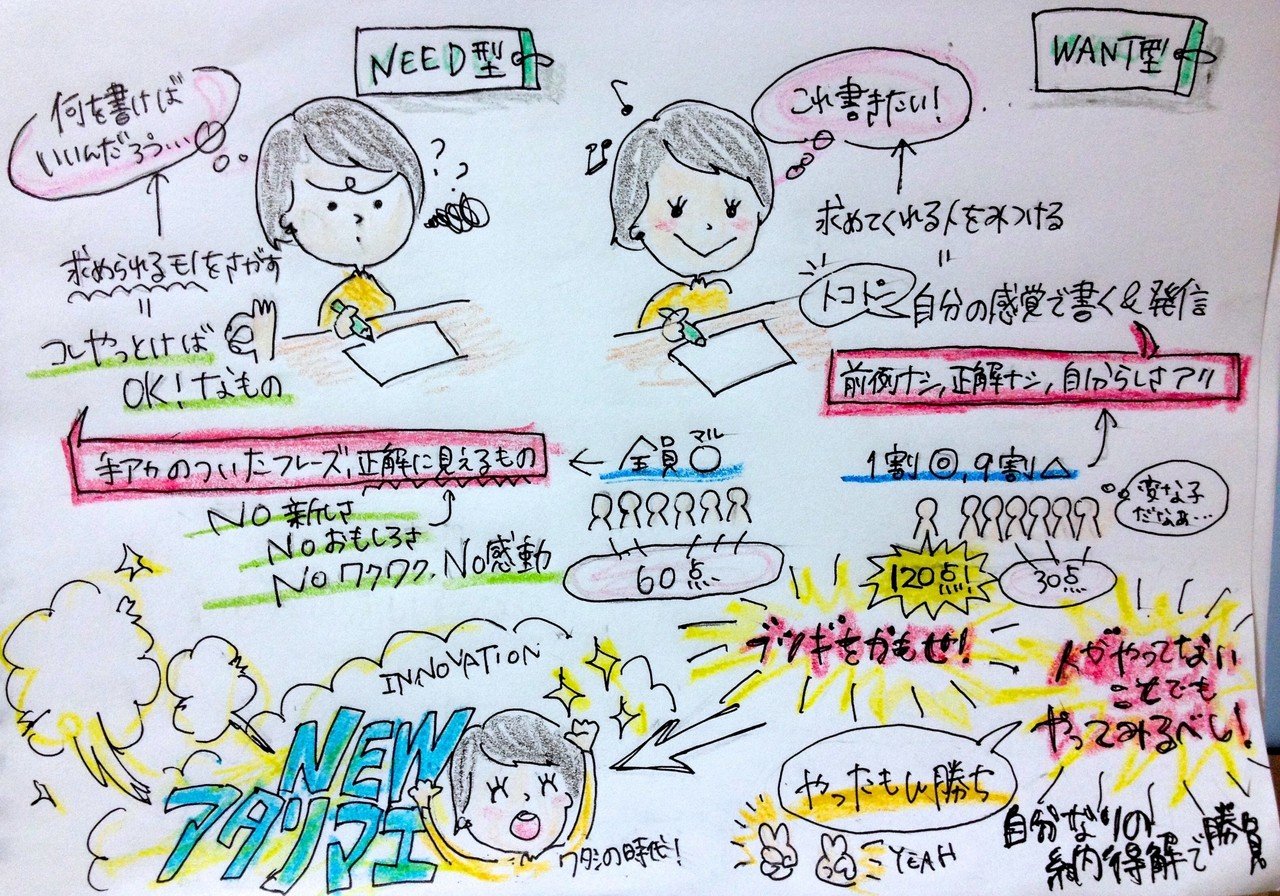 NEED型
何を書けば
いいんだろう…
? ?
求められるモノをさがす
=
コレやっとけば
OK!なもの
手アカのついたフレーズ,正解に見えるもの
NO 新しさ
No おもしろさ
No ワクワク, No感動
← 全員〇
マル
60点
WANT型
これ書きたい!
求めてくれる人をみつける
=
トコトン
自分の感覚で書く&発信
前例ナシ,正解ナシ,自分らしさアリ
1割◎,9割△
変な子
だなぁ…
120点!
30点
ブツギをかもせ!
人がやってない
ことでも
やってみるべし!
やったもん勝ち
YEAH
自分なりの
納得解で勝負
INNOVATION
NEW
アタリマエ
ワタシの時代!